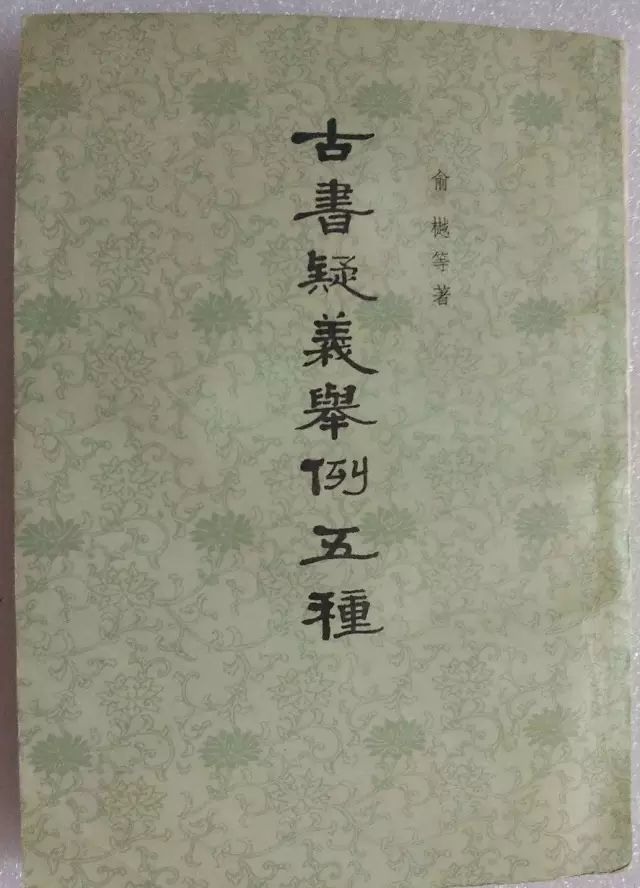 俞樾等著
古書疑義舉例五種